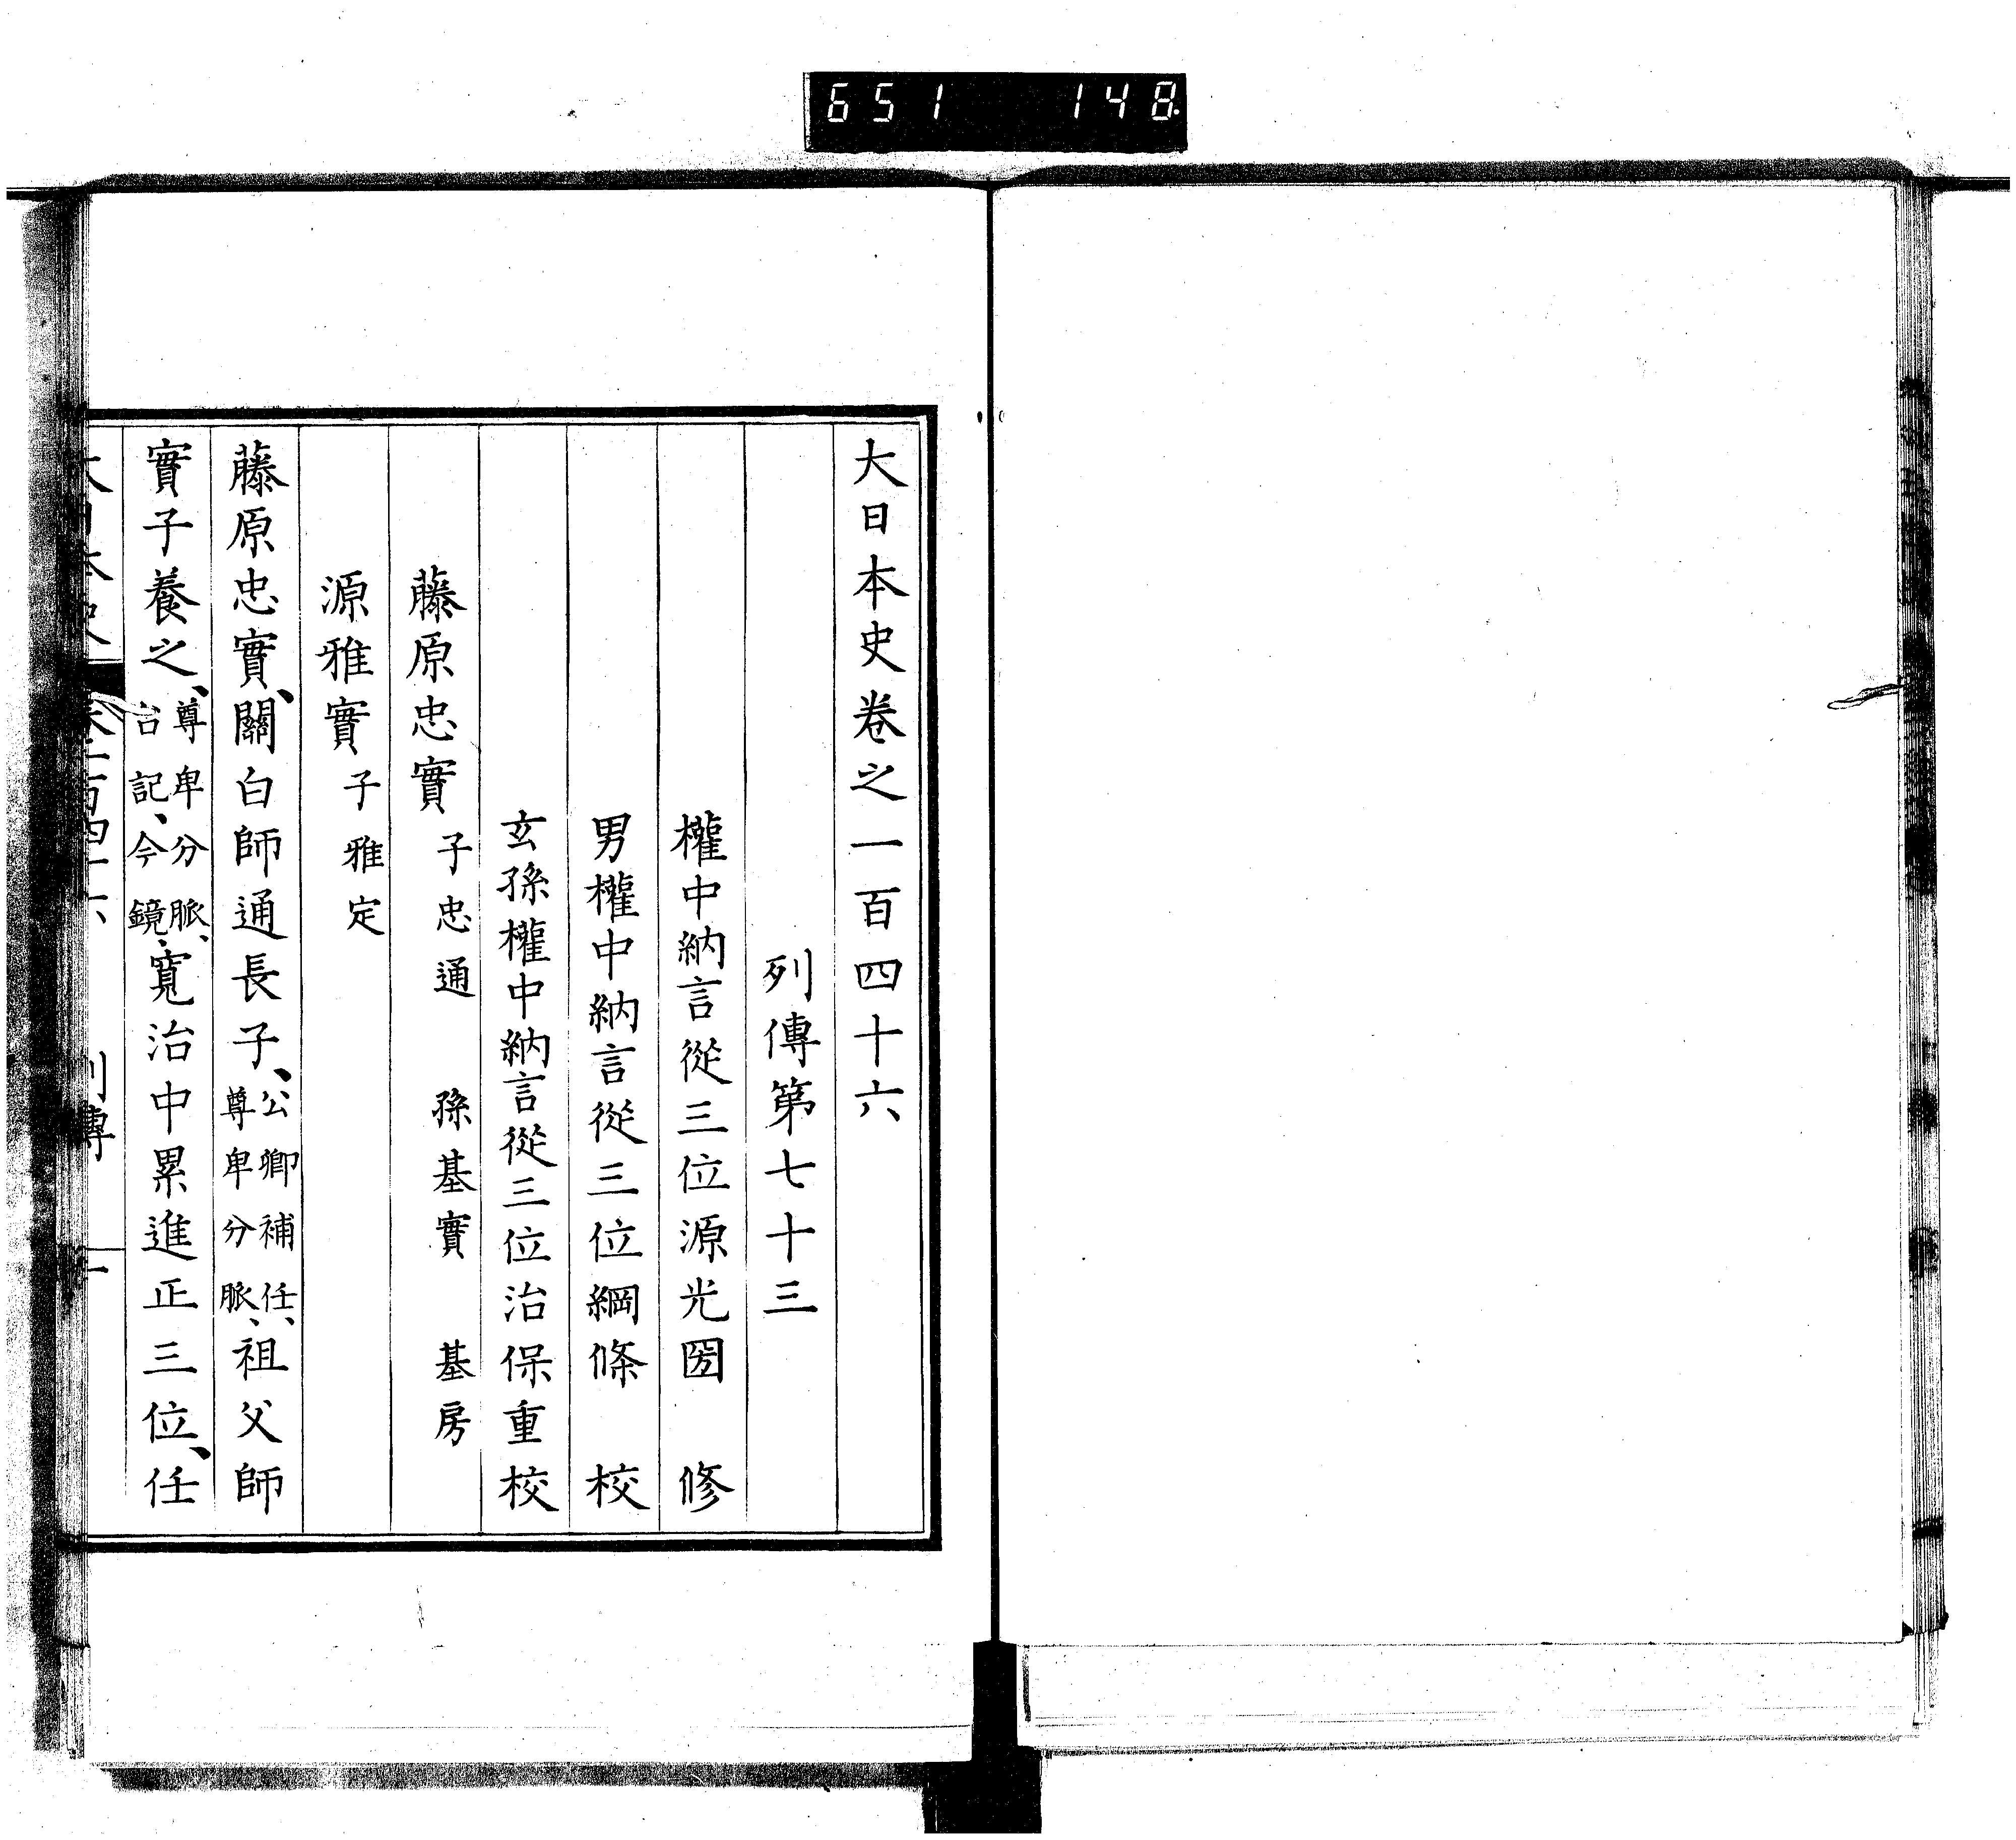 651 148
大日本史卷之一百四十六
列傳第七十三
權中納言從三位源光圀 修
男權中納言從三位綱條 校
玄孫權中納言從三位治保重校
藤原忠實 子忠通 孫基實 基房
源雅實 子雅定
藤原忠實、關白師通長子、公卿補任、尊卑分脈、祖父師
實子養之、尊卑分脈、台記、今鏡、寬治中累進正三位、任